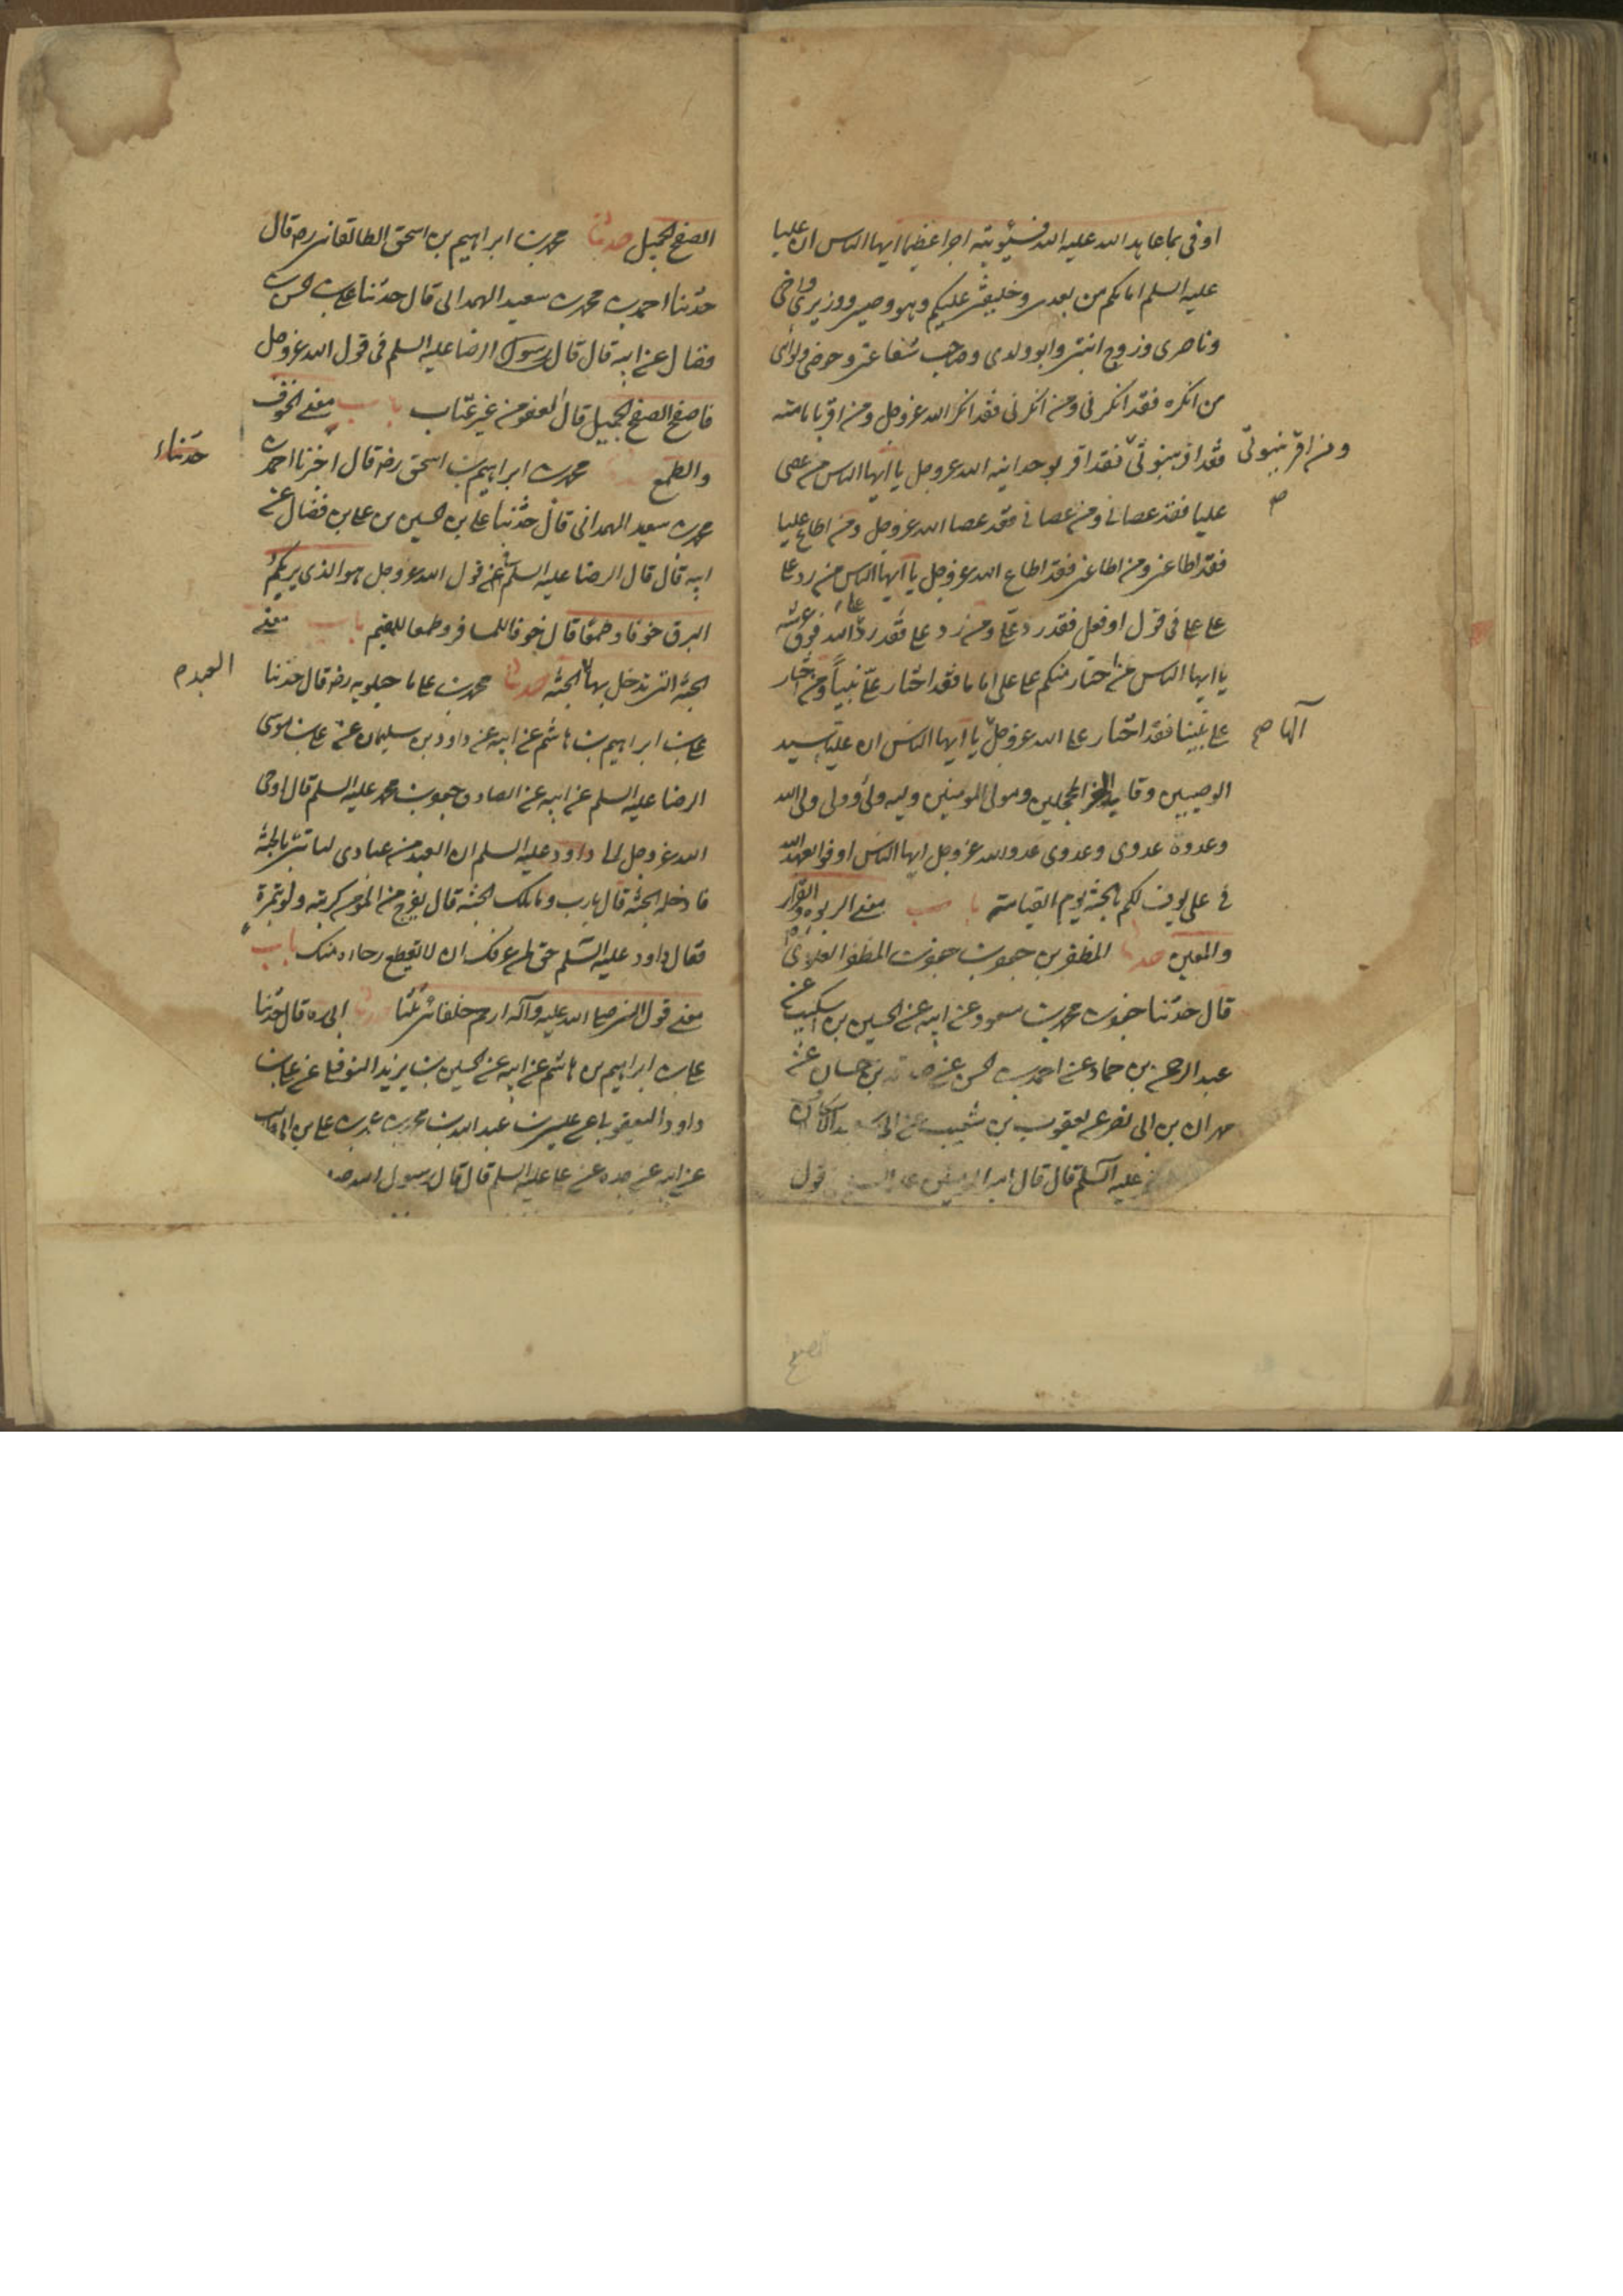 اوفى بما عاهد الله عليه الله فسيؤتيه اجرا عظيما ايها الناس ان عليا
عليه السلم امامكم من بعدى وخليفتى عليكم وهو وصيى ووزيرى واخى
وناصرى وزوج ابنتى وابو ولدى وصاحب شفاعتى وحوضى ولوائى
من انكره فقد انكرنى ومن انكرنى فقد انكر الله عزوجل ومن اقر بامامته
فقد اقر بنبوتى فقد اقر بوحدانيه الله عزوجل يا ايها الناس من عصى
ومن اقر بنبوتى
عليا فقد عصانى ومن عصانى فقد عصا الله عزوجل ومن اطاع عليا
فقد اطاعنى ومن اطاعنى فقد اطاع الله عزوجل يا ايها الناس من رد على
على فى قول او فعل فقد رد على ومن رد على فقد رد على الله فوق عرشه
يا ايها الناس من اختار منكم على على اماما فقد اختار على نبيا ومن اختار
على نبينا فقد اختار على الله عزوجل يا ايها الناس ان عليا سيد
الوصيين وقايد الغر المحجلين ومولى المومنين وليه وليى وولى ولى الله
وعدوه عدوى وعدوى عدو الله عزوجل ايها الناس اوفوا بعهد الله
فى على يوف لكم بالجنة يوم القيامة باب معنى الربوه والقرار
والمعين حدثنا المظفر بن جعفر بن المظفر العلوى
قال حدثنا جعفر بن محمد بن مسعود عن ابيه عن الحسين بن اسكيب عن
عبد الرحمن بن حماد عن احمد بن الحسن عن صدقه بن حسان عن
مهران بن ابى نصر عن يعقوب بن شعيب عن ابى
عليه السلم قال قال امير المومنين قول
الصفح
الصفح الجميل حدثنا محمد بن ابراهيم بن اسحق الطالقانى رضه قال
حدثنا احمد بن محمد بن سعيد الهمدانى قال حدثنا على بن الحسن بن
فضال عن ابيه قال قال رسول الرضا عليه السلم فى قول الله عزوجل
فاصفح الصفح الجميل قال العفو من غير عتاب باب معنى الخوف
والطمع محمد بن ابراهيم بن اسحق رضه قال اخبرنا احمد بن
حدثنا
محمد بن سعيد الهمدانى قال حدثنا على بن الحسين بن على بن فضال عن
ابيه قال قال الرضا عليه السلم فى عن قول الله عزوجل هو الذى يريكم
البرق خوفا وطمعا قال خوفا للمسافر وطمعا للمقيم باب معنى
الجنة التى تدخل بها الجنة حدثنا محمد بن على ماجيلويه رضه قال حدثنا
على بن ابراهيم بن هاشم عن ابيه عن داود بن سليمان عن على بن موسى
الرضا عليه السلم عن ابيه عن الصادق جعفر بن محمد عليه السلم قال اوحى
الله عزوجل الى داود عليه السلم ان العبد من عبادى لياتينى بالحسنة
فادخله الجنة قال يارب وما تلك الحسنة قال يفرج عن المؤمن كربته ولو بتمرة
فقال داود عليه السلم حق لمن عرفك ان لا يقطع رجاءه منك باب
معنى قول النبى صلى الله عليه وآله ارحم خلفائى ثلثا حدثنا ابى ره قال حدثنا
على بن ابراهيم بن هاشم عن ابيه عن الحسين بن يزيد النوفلى عن على بن
داود اليعقوبى عن عيسى بن عبد الله بن محمد بن عمر بن على بن ابى طالب
عن ابيه عن جده عن على عليه السلم قال قال رسول الله